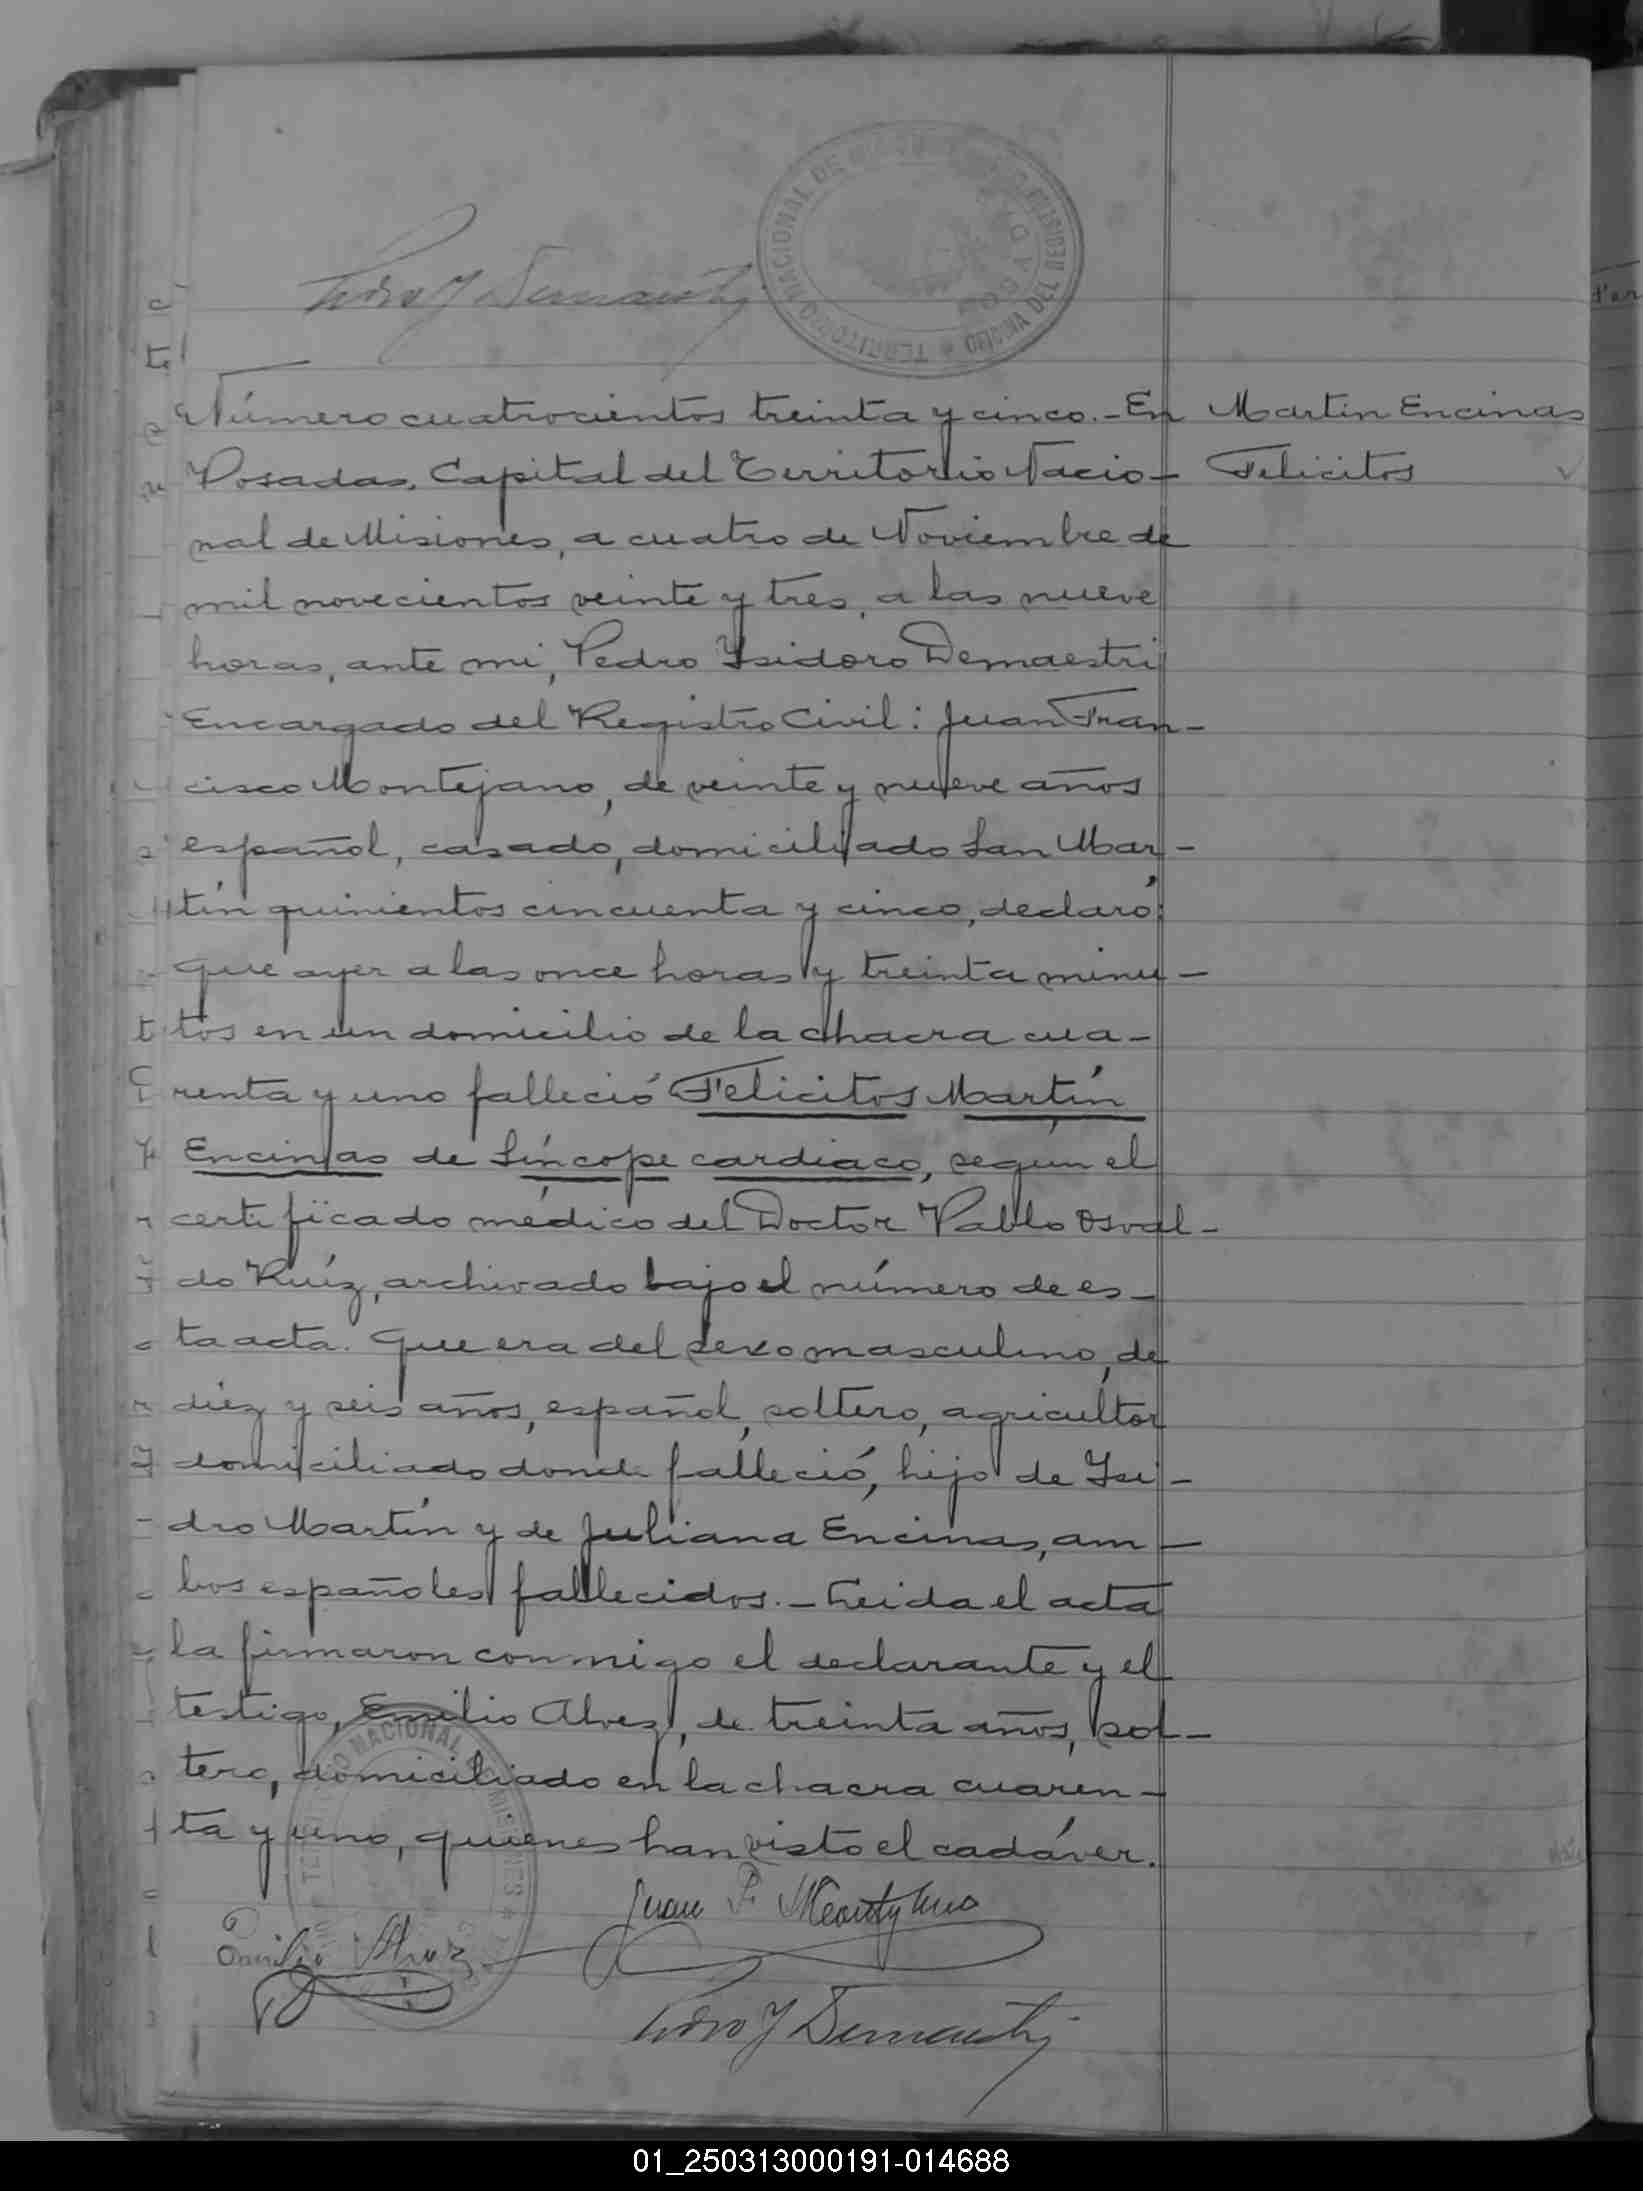 Pedro Y Demaestri
TERRITORIO NACIONAL DE MISIONES
OFICINA DEL REGISTRO
POSADAS
Número cuatrocientos treinta y cinco.- En
Martin Encinas
Posadas, Capital del Territorio Nacio-
Felicitos
nal de Misiones, a cuatro de Noviembre de
mil novecientos veinte y tres, a las nueve
horas, ante mi, Pedro Ysidoro Demaestri
Encargado del Registro Civil: Juan Fran-
cisco Montejano, de veinte y nueve años
español, casado, domiciliado San Mar-
tín quinientos cincuenta y cinco, declaró:
Que ayer a las once horas y treinta minu-
tos en un domicilio de la chacra cua-
renta y uno falleció Felicitos Martín
Encinas de Síncope cardiaco, según el
certificado médico del Doctor Pablo Osval-
do Ruíz, archivado bajo el número de es-
ta acta. Que era del sexo masculino, de
diéz y seis años, español, soltero, agricultor
domiciliado donde falleció, hijo de Ysi-
dro Martín y de Juliana Encinas, am-
bos españoles fallecidos.- Leida el acta
la firmaron conmigo el declarante y el
testigo, Emilio Alvez, de treinta años, sol-
tero, domiciliado en la chacra cuaren-
ta y uno, quienes han visto el cadáver.
Juan F. Montejano
Emilio Alvez
Pedro Y Demaestri
TERRITORIO NACIONAL DE MISIONES
01_250313000191-014688